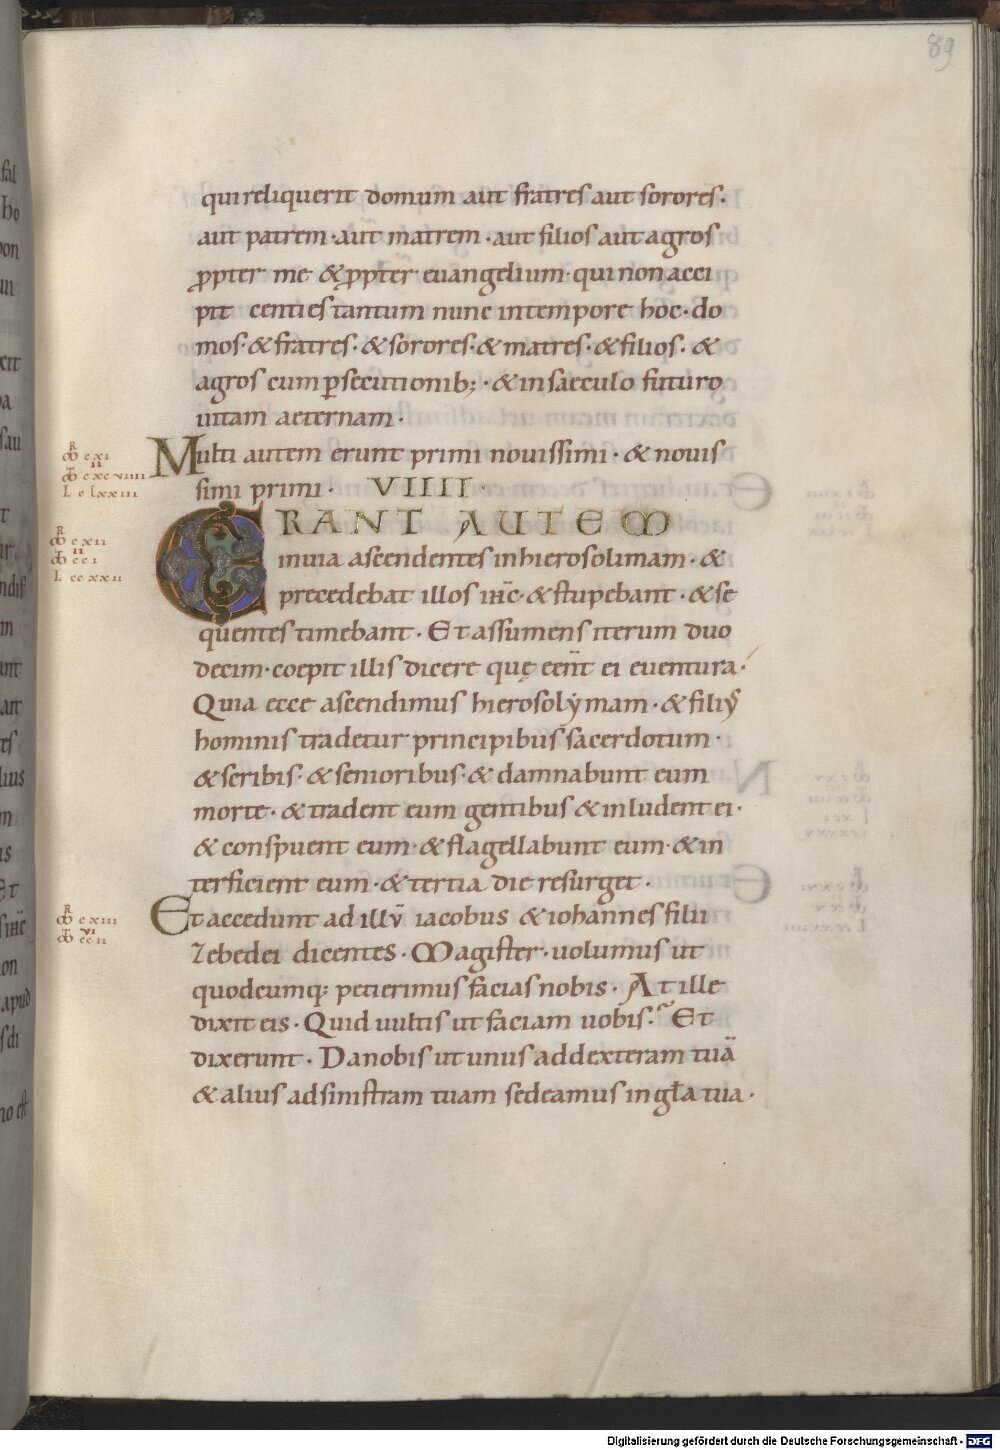 89
qui reliquerit domum aut fratres aut sorores·
aut patrem· aut matrem· aut filios aut agros
ppter me & ppter euangelium· qui non acci
pit centies tantum nunc in tempore hoc· do
mos· & fratres· & sorores· & matres· & filios· &
agros cum psecutionib;· & in saeculo futuro
uitam aeternam·
Multi autem erunt primi nouissimi· & nouis
simi primi· VIIII·
ERANT AUTEM
in uia ascendentes in hierosolimam· &
precedebat illos ihc· & stupebant· & se
quentes timebant· Et assumens iterum duo
decim· coepit illis dicere quę eent ei euentura·
Quia ecce ascendimus hierosolymam· & filius
hominis tradetur principibus sacerdotum·
& scribis· & senioribus· & damnabunt eum
morte· & tradent eum gentibus & inludent ei·
& conspuent eum· & flagellabunt eum· & in
terficient eum· & tertia die resurget·
Et accedunt ad illū iacobus & iohannes filii
Zebedei dicentes· Magister· uolumus ut
quodcumq; petierimus facias nobis· At ille
dixit eis· Quid uultis ut faciam uobis? Et
dixerunt· Da nobis ut unus ad dexteram tuā
& alius ad sinistram tuam sedeamus in gła tua·
Digitalisierung gefördert durch die Deutsche Forschungsgemeinschaft - DFG